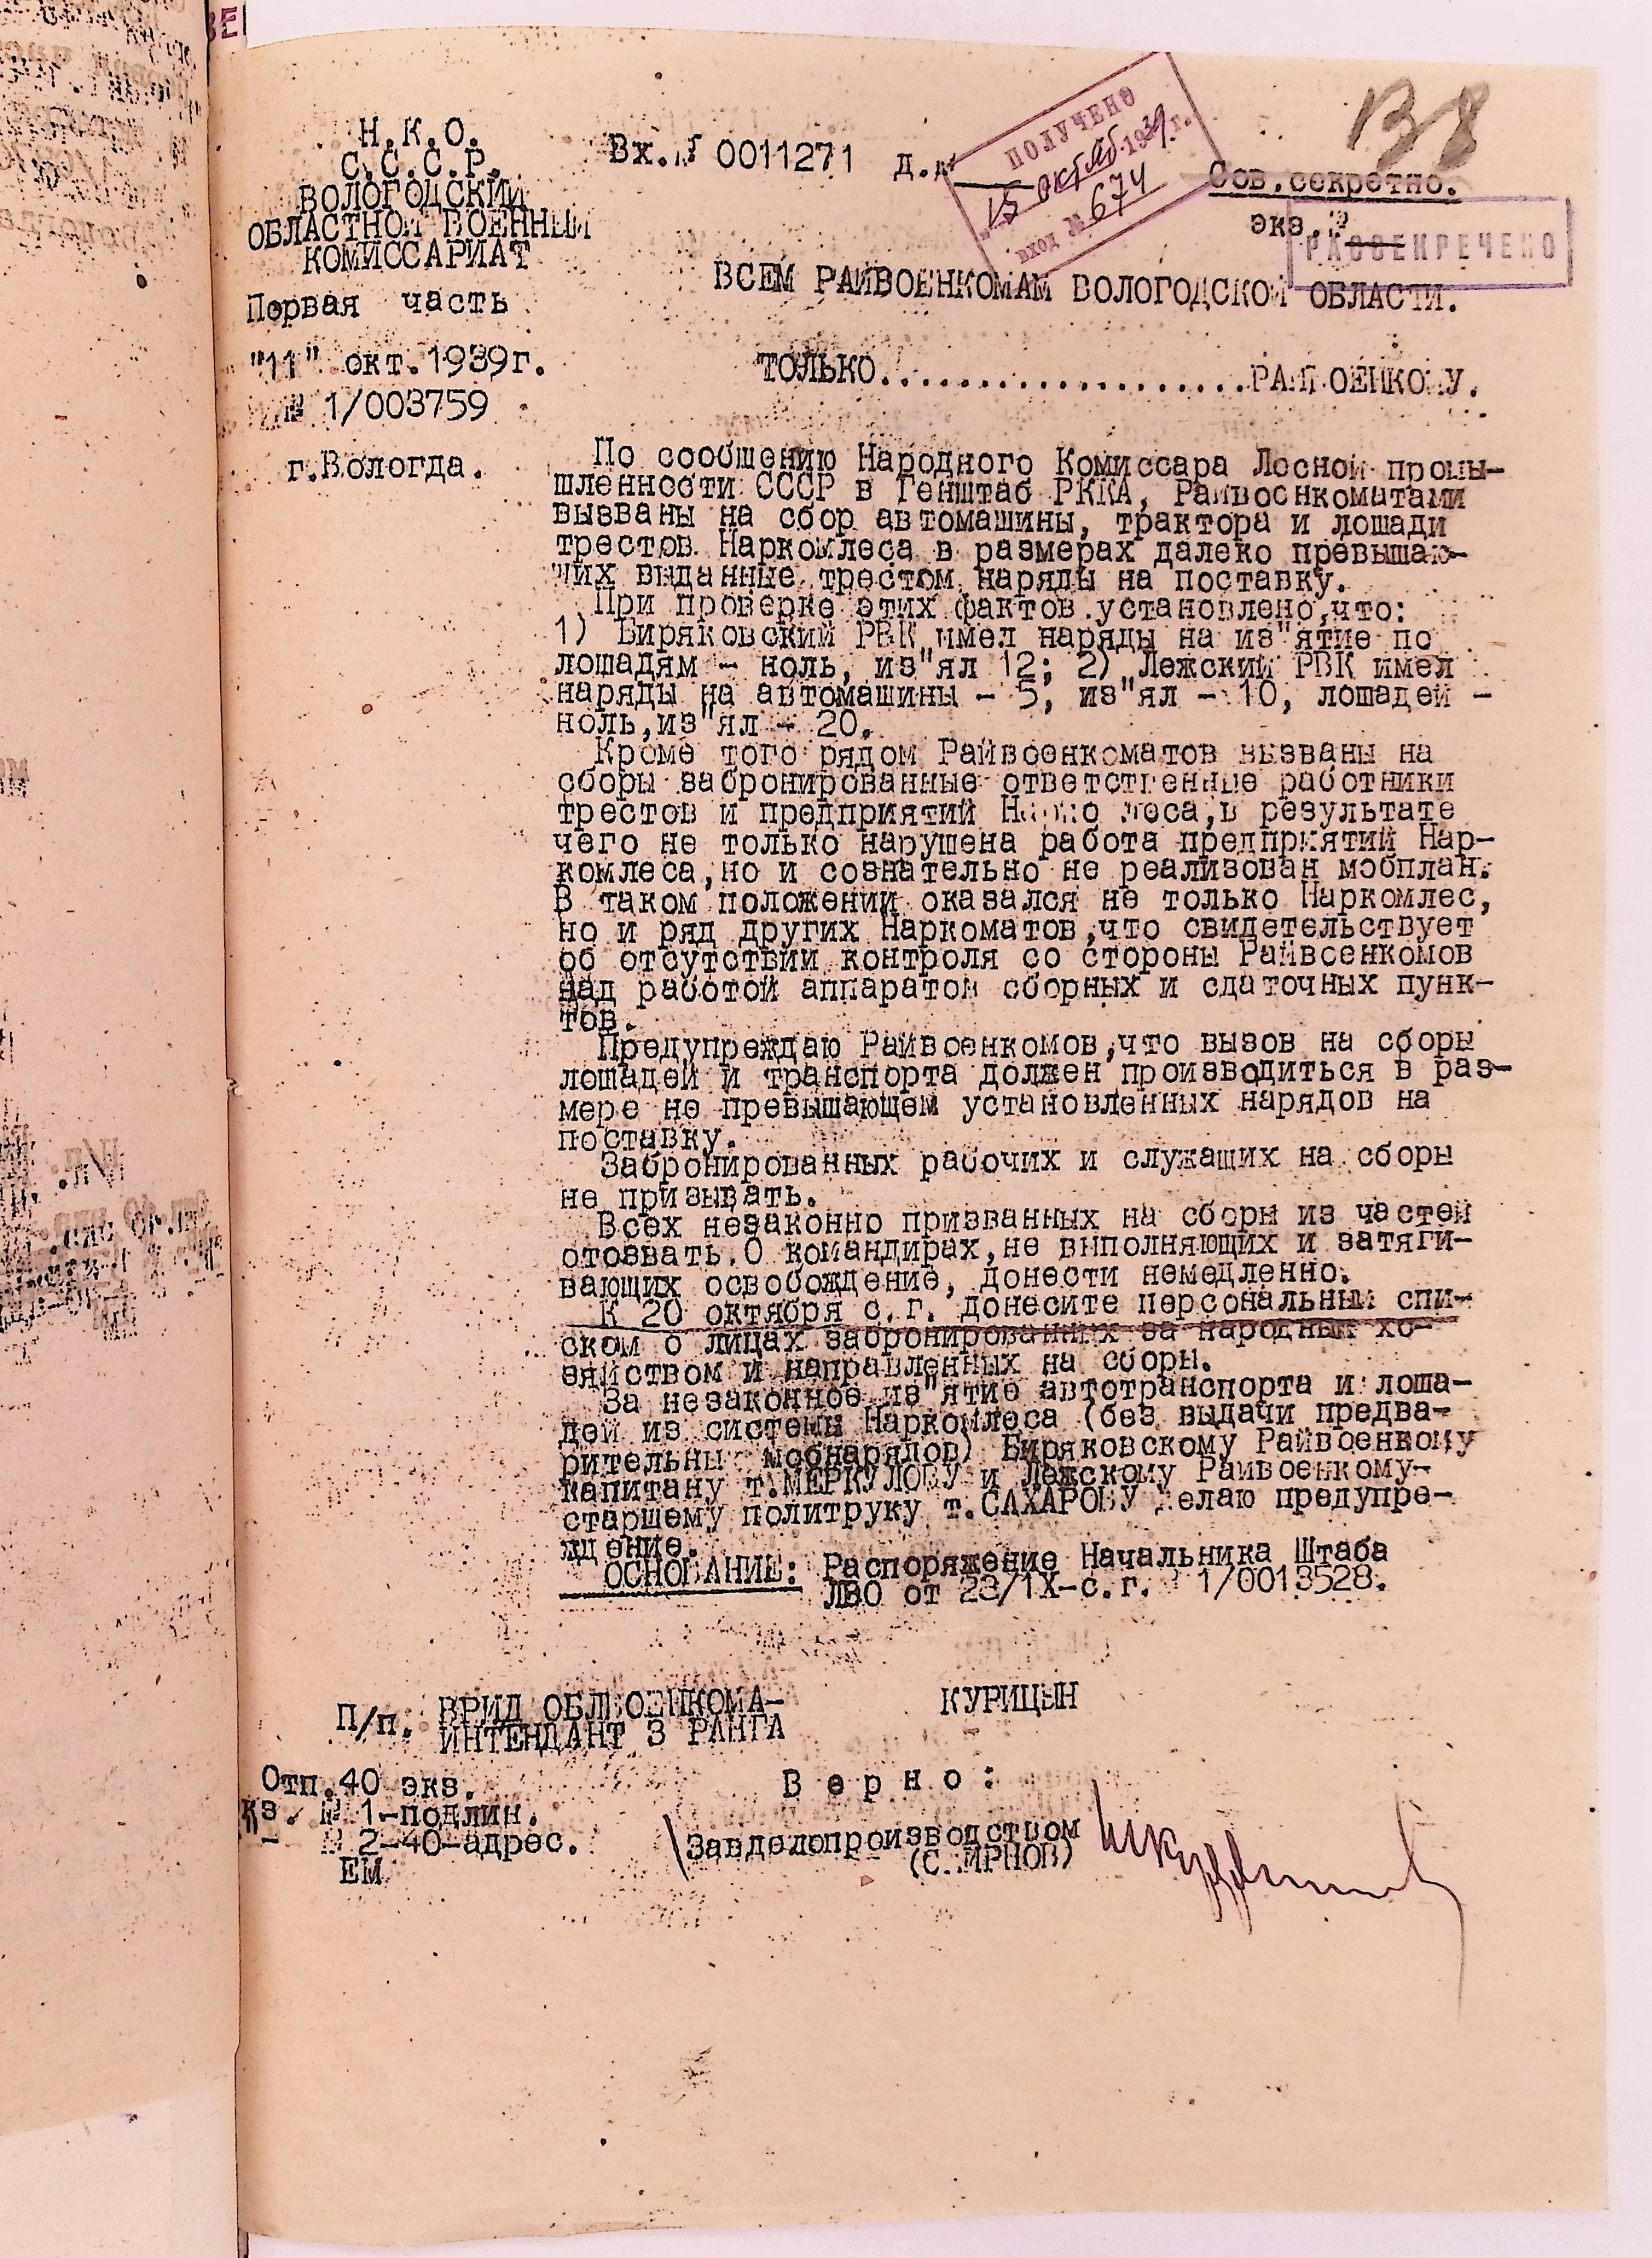 Н.К.О.
С.С.С.Р.
ВОЛОГОДСКИЙ
ОБЛАСТНОЙ ВОЕННЫЙ
КОМИССАРИАТ
Первая часть
"11" окт.1939г.
№ 1/003759
г.Вологда.
Вх.№ 0011271 д.№
ПОЛУЧЕНО
"15" октяб 1939 г.
вход № 674
138
Сов.секретно.
экз.№
РАССЕКРЕЧЕНО
ВСЕМ РАЙВОЕНКОМАМ ВОЛОГОДСКОЙ ОБЛАСТИ.
ТОЛЬКО...................РАЙВОЕНКОМУ.
По сообщению Народного Комиссара Лесной промы-
шленности СССР в Генштаб РККА, Райвоенкоматами
вызваны на сбор автомашины, трактора и лошади
трестов Наркомлеса в размерах далеко превышаю-
щих выданные трестом наряды на поставку.
При проверке этих фактов установлено,что:
1) Биряковский РВК имел наряды на из"ятие по
лошадям - ноль, из"ял 12; 2) Лежский РВК имел
наряды на автомашины - 5, из"ял - 10, лошадей -
ноль,из"ял - 20.
Кроме того рядом Райвоенкоматов вызваны на
сборы забронированные ответственные работники
трестов и предприятий Наркомлеса,в результате
чего не только нарушена работа предприятий Нар-
комлеса,но и сознательно не реализован мобплан.
В таком положении оказался не только Наркомлес,
но и ряд других Наркоматов,что свидетельствует
об отсутствии контроля со стороны Райвоенкомов
над работой аппаратов сборных и сдаточных пунк-
тов.
Предупреждаю Райвоенкомов,что вызов на сборы
лошадей и транспорта должен производиться в раз-
мере не превышающем установленных нарядов на
поставку.
Забронированных рабочих и служащих на сборы
не призывать.
Всех незаконно призванных на сборы из частей
отозвать.О командирах,не выполняющих и затяги-
вающих освобождение, донести немедленно.
К 20 октября с.г. донесите персональным спи-
ском о лицах забронированных за народным хо-
зяйством и направленных на сборы.
За незаконное из"ятие автотранспорта и лоша-
дей из системы Наркомлеса (без выдачи предва-
рительных мобнарядов) Биряковскому Райвоенкому
капитану т.МЕРКУЛОВУ и Лежскому Райвоенкому-
старшему политруку т.САХАРОВУ делаю предупре-
ждение.
ОСНОВАНИЕ: Распоряжение Начальника Штаба
ЛВО от 23/IX-с.г. № 1/0013528.
П/п. ВРИД ОБЛВОЕНКОМА-
ИНТЕНДАНТ 3 РАНГА
КУРИЦЫН
Отп.40 экз.
кз. № 1-подлин.
- № 2-40-адрес.
ЕМ
Верно:
Завделопроизводством
(СМИРНОВ)